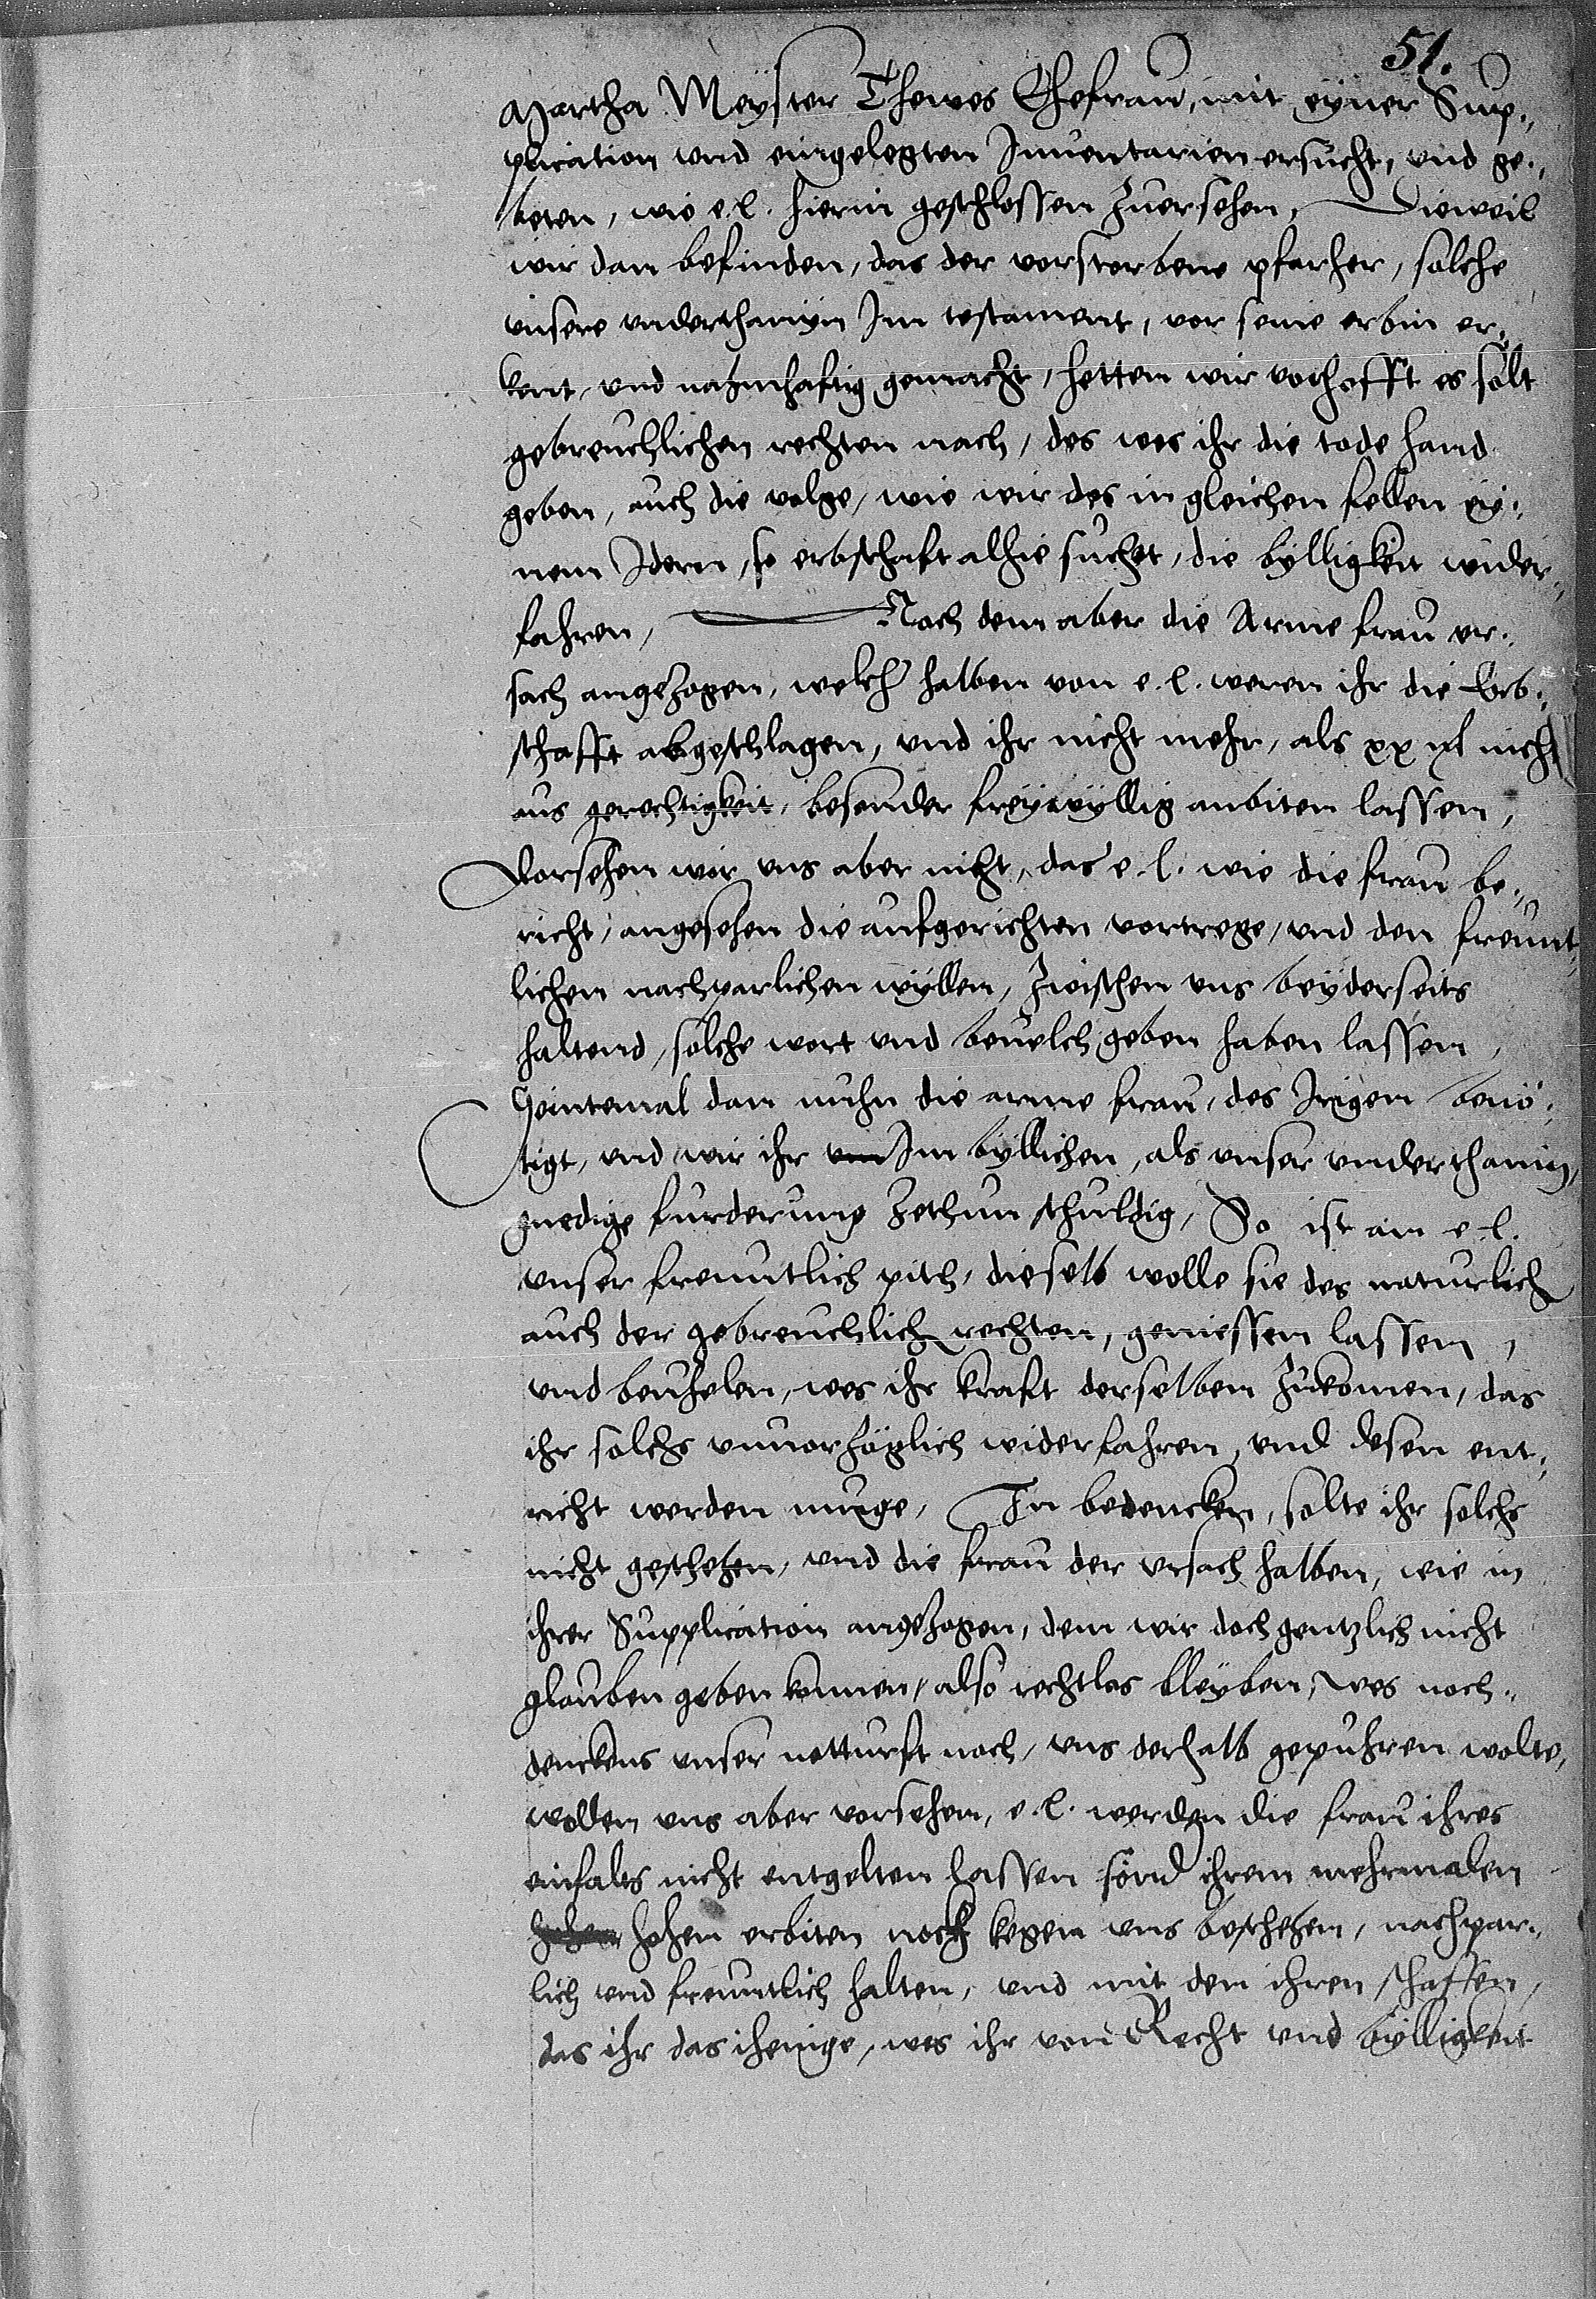 51.
Martha Meyster Thewes Ehefrau, mit eyner Sup„
plication vnd eingelegten Inuentarien ersucht, vnd ge„
beten, wie e. l. hierin geschlossen zuersehen, Dieweil
wir dan befinden, das der verstorbene pfarher, solche
vnsere vnderthanyn Im testament, vor seine erbin er„
kent, vnd nahmhaftig gemacht, hetten wir vorhofft es solt
gebreuchlichen rechten nach, des wes ihr die tode hand
geben, auch die volge, wie wir des in gleichen fellen ey„
nem Idern, so erbschaft alhie suchet, die bylligkeit wider„
fahren, Nach dem aber die Arme frau vr„
sach angezogen, welcher halben von e. l. weren ihr die Erb„
schafft abgeschlagen, vnd ihr nicht mehr, als xx fl nicht
aus gerechtigkeit, besonder freywyllig anbiten lassen,
Vorsehen wir vns aber nicht, das e. l. wie die frau be„
richt, angesehen die aufgerichten vortrege, vnd den freunt„
lichen nachparlichen wyllen, zwischen vns beyderseits
haltend, solche wort vnd beuelch geben haben lassen,
Seintemal dan nuhn die arme frau, des Irigen benö„
tigt, vnd wir ihr Im byllichen, als vnser vnderthanin,
gnedige furderung zethun schuldig, So ist an e. l.
vnser freuntlich pith, dieselb wolle sie des naturlich
auch der gebreuchlich rechten, geniessen lassen,
vnd beuhelen, wes ihr kraft derselben zukomen, das
ihr solchs vnuorzöglich widerfahren, vnd desen ent„
richt werden muge, In bedencken, solte ihr solchs
nicht geschehen, vnd die frau der vrsach halben, wie in
ihrer Supplication angezogen, dem wir doch gentzlich nicht
glauben geben konnen, also rechtlos bleyben, wes noch„
denckens vnser notturft nach, vns derhalb gepuhren wolte,
wollen vns aber vorsehen, e. l. werden die frau ihres
einfalts nicht entgelten lassen sond ihrem mehrmalen
hohen erbiten noch kegen vns beschehen, nachpar„
lich vnd freuntlich halten, vnd mit den ihren schaffen,
das ihr das ihenige, wes ihr von Recht vnd bylligkeit